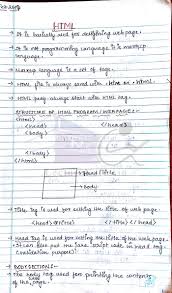 HTML
→ It is basically used for designing web page.
→ It is not programming language. It is markup
language.
→ Markup language is a set of tags.
→ HTML file is always send with .html or .htmel.
→ HTML page always start with html tag.
STRUCTURE OF HTML PROGRAM / WEBPAGE :-
<html> </html>
<head> </head>
<body>
</body>
</html>
Head/Title
Body
→ Title tag is used for setting the title of web page.
<head> <title> </title> </head>
→ Head tag is used for setting the title of the web page.
→ It can also put the java script code in head tag
(validation purpose).
→ BODY SECTION :-
The body tag used for printing the contents
of the page.